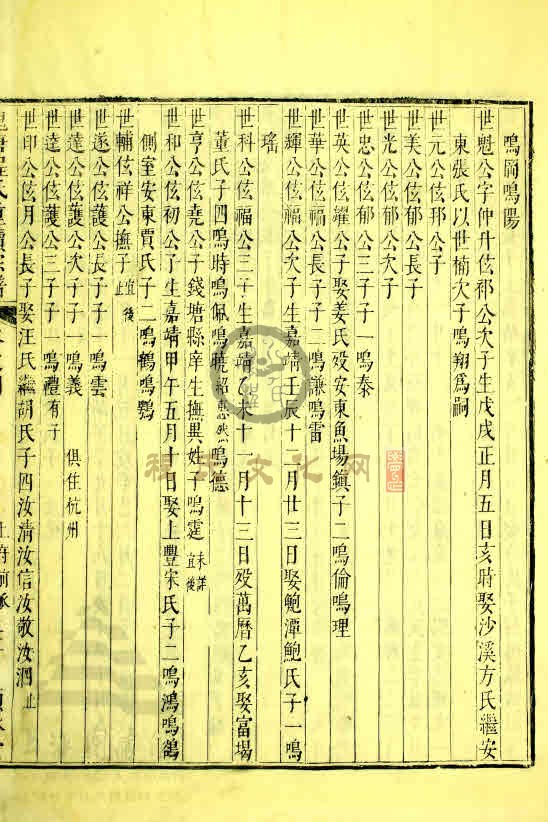 鳴岡鳴陽
世魁公字仲升伭祁公次子生戊戌正月五日亥時娶沙溪方氏繼安
東張氏以世楠次子鳴翔爲嗣
世元公伭邦公子
世美公伭郁公長子
世光公伭郁公次子
世忠公伭郁公三子子一鳴泰
世英公伭耀公子娶姜氏殁安東魚場鎮子二鳴倫鳴理
世華公伭福公長子子二鳴謙鳴雷
世輝公伭福公次子生嘉靖壬辰十二月廿三日娶鮑潭鮑氏子一鳴
瑤
世科公伭福公三子生嘉靖乙未十一月十三日殁萬曆乙亥娶富堨
董氏子四鳴時鳴佩鳴曉紹惠然鳴德
世亨公伭堯公子錢塘縣庠生撫異姓子鳴霆未詳宜後
世和公伭初公子生嘉靖甲午五月十日娶上豐宋氏子二鳴鴻鳴鶴
側室安東賈氏子二鳴鶴鳴鸚
世輔伭祥公撫子宜後止
世遂公伭護公長子子一鳴雲
世蓬公伭護公次子子一鳴義 俱住杭州
世達公伭護公三子子一鳴禮有子
世印公伭月公長子娶汪氏繼胡氏子四汝清汝信汝敬汝泗止
程文化网